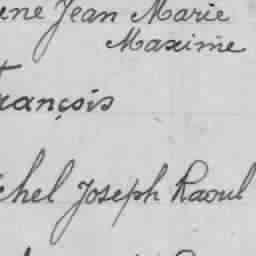 ene Jean Marie
Maxime
rançois
chel Joseph Raoul